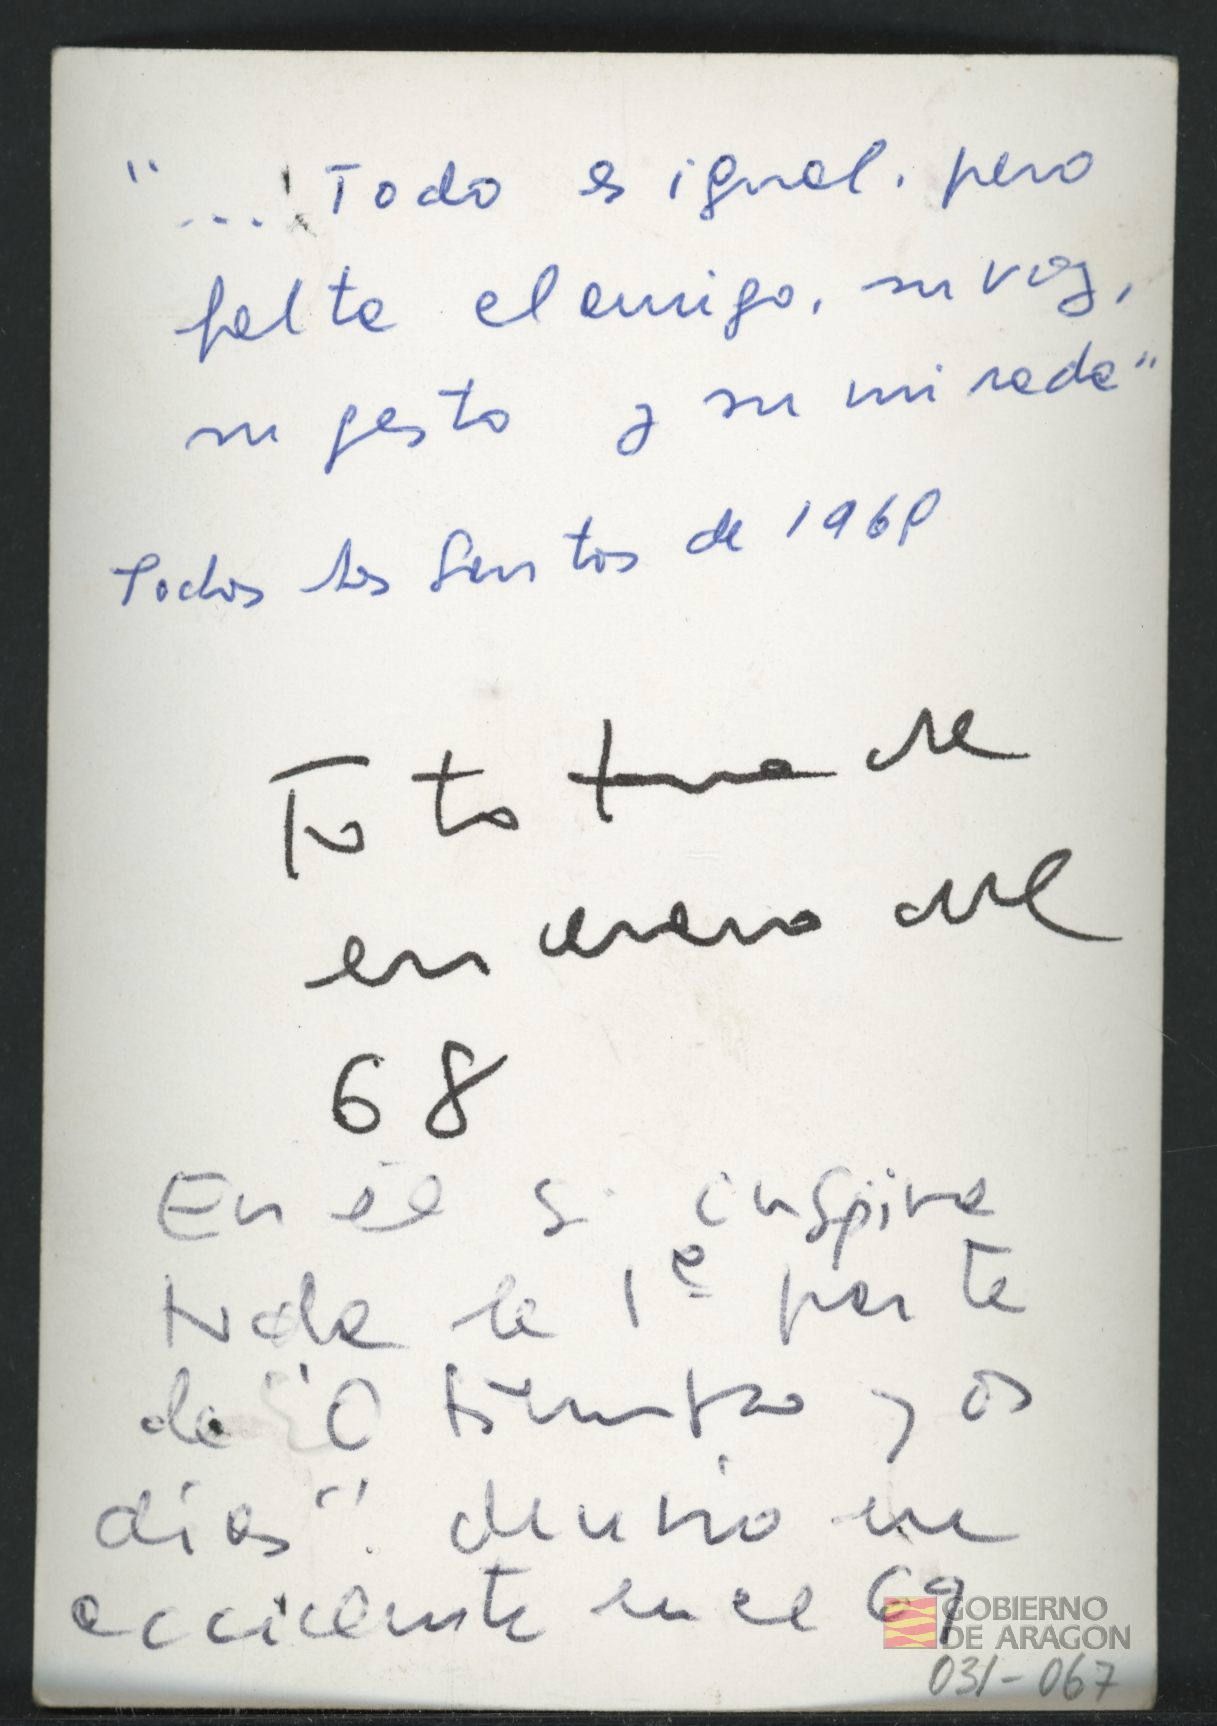 "... Todo es igual, pero
falta el amigo, su voz,
su gesto y su mirada"
Todos los Santos de 1969
Foto tomada
en enero del
68
En él se inspira
toda la 1ª parte
de "O tiempo y os
días". Murió en
accidente en el 69
GOBIERNO
DE ARAGON
031-067